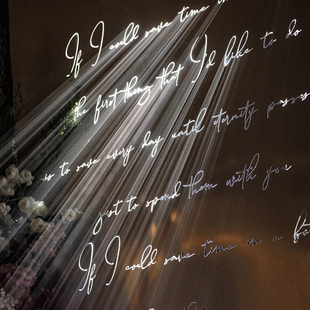 If I could save time in
the first thing that I'd like to do
is to save every day until eternity passes
just to spend them with you
If I could save time in a